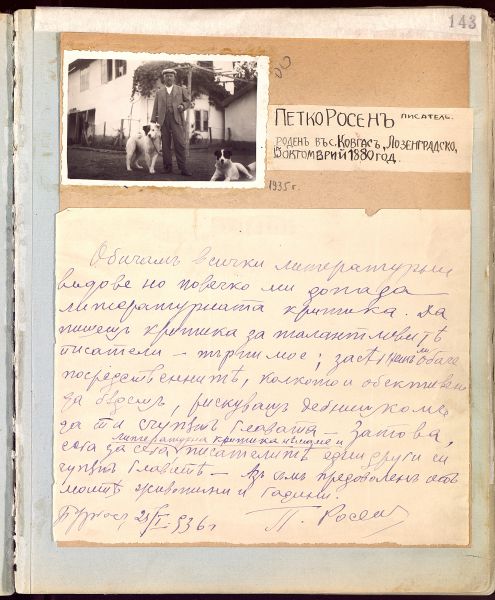 143
ПЕТКО РОСЕНЪ ПИСАТЕЛЬ.
РОДЕНЪ ВЪ С. КОВГАСЪ, ЛОЗЕНГРАДСКО,
15 ОКТОМВРИЙ 1880 ГОД.
1935 г.
Обичамъ всички литературни
видове но повечко ми допада
литературната критика. Да
пишешъ критика за талантливитѣ
писатели — търпимое;
посредственитѣ, колкото и обективенъ
да бѫдешъ, рискувашъ
да ти счупятъ главата — Затова,
литературна критика нѣмаме и
сега за сега писателитѣ едни други си
чупятъ главитѣ — Азъ съмъ предоволенъ отъ
моитѣ животни и години.
Бургасъ, 936 г П. Росенъ